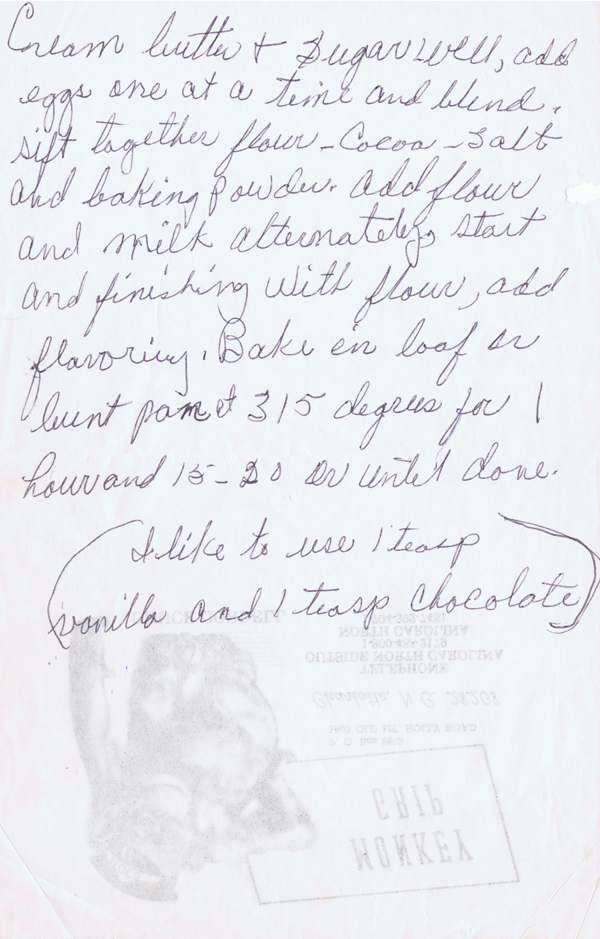 Cream butter + Sugar well, add
eggs one at a time and blend.
sift together flour - Cocoa - Salt
and baking powder. add flour
and milk alternately, start
and finishing with flour, add
flavoring. Bake in loaf or
bunt pan at 315 degrees for 1
hour and 15-20 or until done.
(I like to use 1 teasp
vanilla and 1 teasp chocolate)
TELEPHONE
OUTSIDE NORTH CAROLINA
1-800-438-2179
NORTH CAROLINA
Charlotte, N.C. 28208
P. O. Box
OLD MT. HOLLY ROAD
MONKEY
GRIP